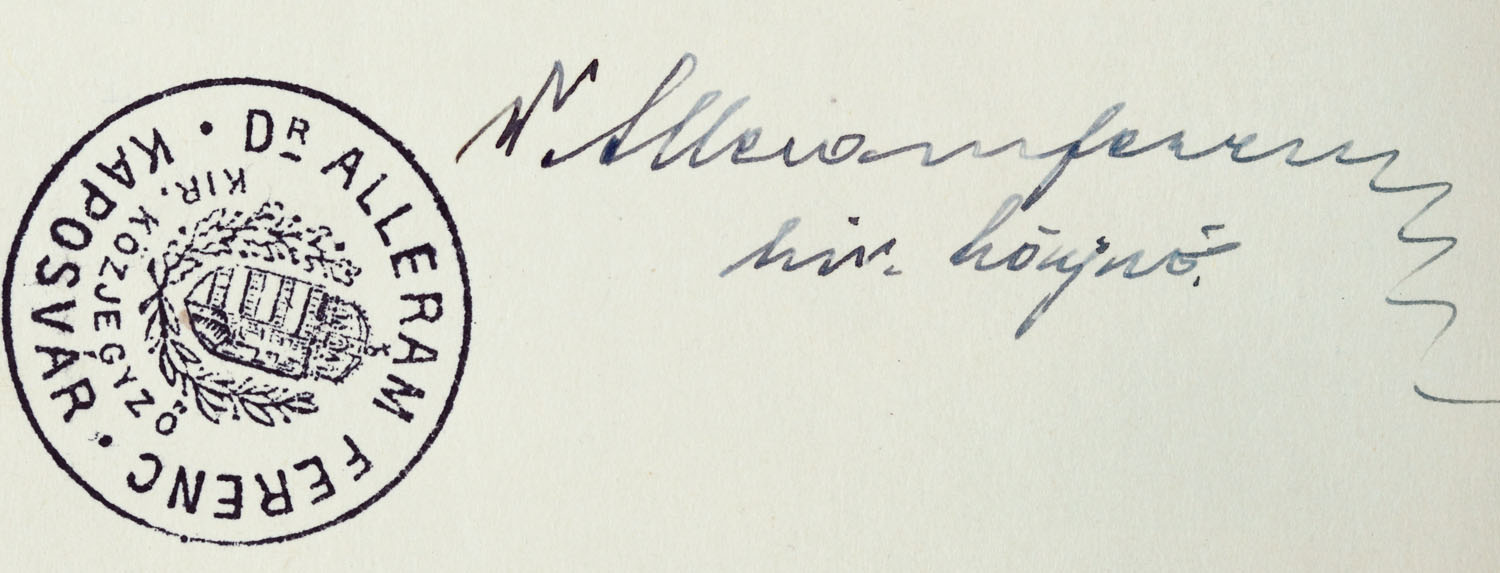 DR ALLERAM FERENC • KAPOSVÁR •
KIR. KÖZJEGYZŐ
Dr. Alleram Ferenc
kir. közjegyző.